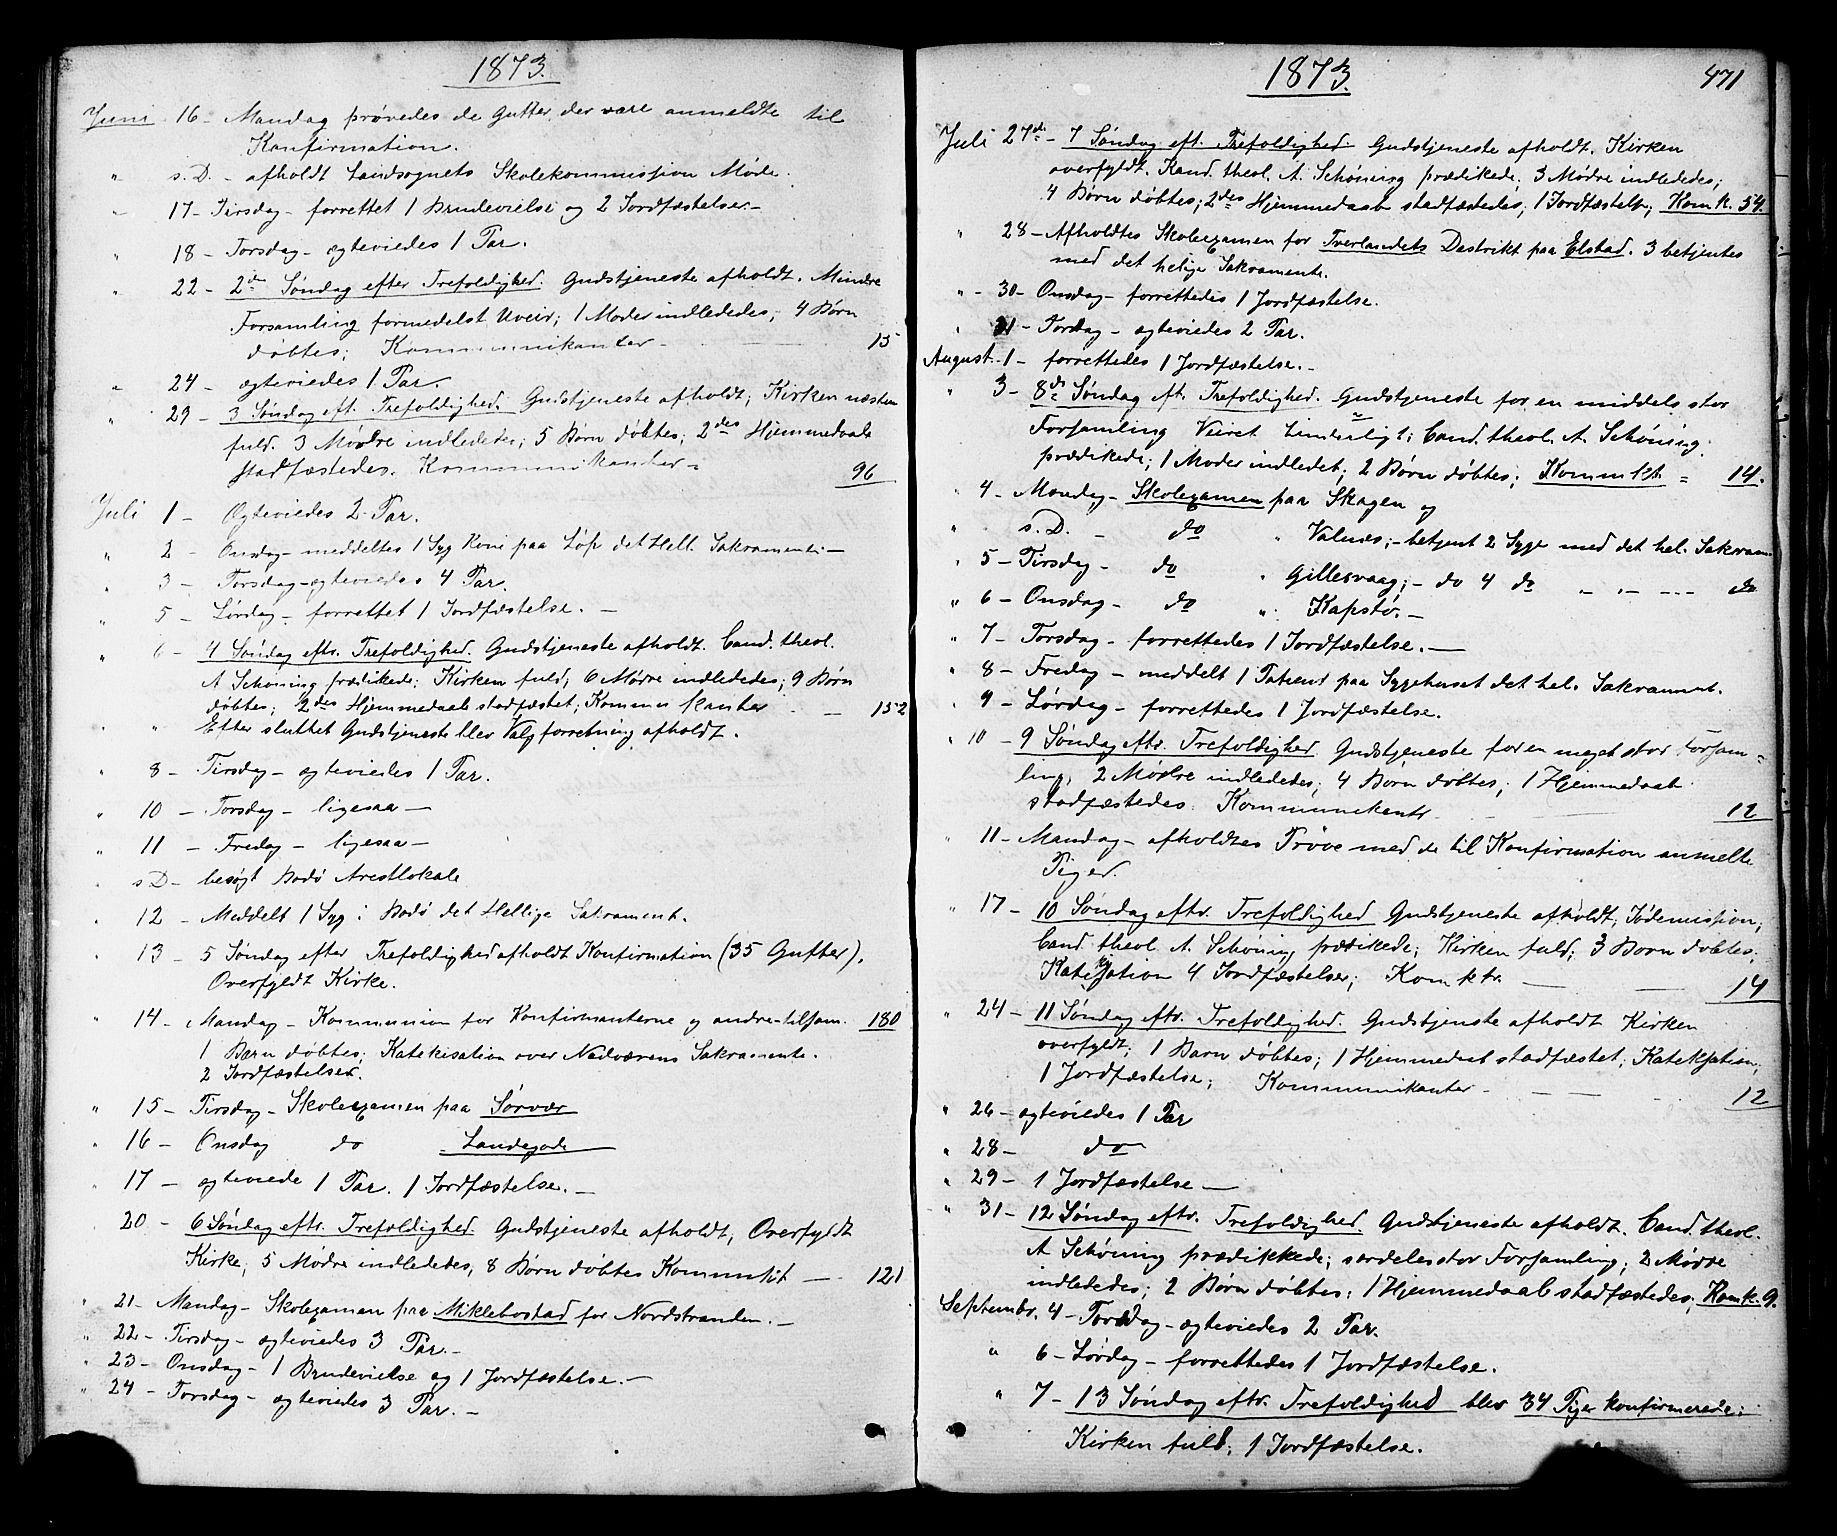 1873.
Juni 16 - Mandag prøvedes de Gutter, der vare anmeldte til
Konfirmation.
" s. D. - afholdt Landsognets Skolekommission Møde.
" 17 - Tirsdag - forrettet 1 Brudevielse og 2 Jordfæstelser -
" 18 - Torsdag - ægteviedes 1 Par.
" 22 - 2den Søndag efter Trefoldighed. Gudstjeneste afholdt. Mindre
Forsamling formedelst Uveir; 1 Moder indlededes; 4 Børn
døbtes; Kommunikanter - 15
" 24 - ægteviedes 1 Par.
" 29 - 3 Søndag eft. Trefoldighed. Gudstjeneste afholdt; Kirken næsten
fuld. 3 Mødre indlededes; 5 Børn døbtes; 2des Hjemmedaab
stadfæstedes. Kommunikanter - 96
Juli 1 - Ægteviedes 2 Par.
" 2 - Onsdag - meddeltes 1 Syg Kone paa Løp det Hell. Sakramente -
" 3 - Torsdag - ægteviedes 4 Par.
" 5 - Lørdag - forrettet 1 Jordfæstelse. -
" 6 - 4 Søndag eftr. Trefoldighed. Gudstjeneste afholdt. Cand. theol.
A Schøning prædikede; Kirken fuld; 6 Mødre indlededes; 9 Børn
døbtes; 2des Hjemmedaab stadfæstet; Kommunikanter - 152
" " Efter sluttet Gudstjeneste blev Valgforretning afholdt.
" 8 - Tirsdag - ægteviedes 1 Par.
" 10 - Torsdag - ligesaa -
" 11 - Fredag - ligesaa -
" s D - besøgt Bodø Arestlokale
" 12 - Meddelt 1 Syg i Bodø det Hellige Sakrament.
" 13 - 5 Søndag efter Trefoldighed afholdt Konfirmation (35 Gutter).
Overfyldt Kirke.
" 14 - Mandag - Kommunion for Konfirmanterne og andre - tilsam. 180
1 Barn døbtes; Katekisation over Nadverens Sakramente.
2 Jordfæstelser.
" 15 - Tirsdag - Skoleexamen paa Sørvær
" 16 - Onsdag do Landegode
" 17 - ægteviede 1 Par. 1 Jordfæstelse. -
20 - 6 Søndag eftr. Trefoldighed. Gudstjeneste afholdt, Overfyldt
Kirke; 5 Mødre indlededes, 8 Børn døbtes Kommukt - 121
" 21 - Mandag - Skoleexamen paa Miklebostad for Nordstranden. -
" 22 - Tirsdag - ægteviedes 3 Par. -
" 23 - Onsdag - 1 Brudevielse og 1 Jordfæstelse. -
" 24 - Torsdag - ægteviedes 3 Par. -
1873. 471
Juli 27de - 7 Søndag eft. Trefoldighed. Gudstjeneste afholdt. Kirken
overfyldt. Kand. theol. A. Schøning prædikede; 3 Mødre indlededes;
4 Børn døbtes; 2des Hjemmedaab stadfæstedes; 1 Jordfæstelse, Komk. 54.
" 28 - Afholdtes Skoleexamen for Tverlandets Distrikt paa Elstad. 3 betjentes
med det hellige Sakrament.
" - 30 - Onsdag - forrettedes 1 Jordfæstelse.
" 31 - Torsdag - ægteviedes 2 Par.
August 1 - forrettedes 1 Jordfæstelse. -
" 3 - 8de Søndag eft. Trefoldighed. Gudstjeneste for en middels stor
Forsamling Veiret Linderligt; Cand. theol. A. Schøning.
prædikede; 1 Moder indledet; 2 Børn døbtes; Kommkt. = 14.
" 4 - Mandag - Skoleexamen paa Skagen og
" s. D. - do " Valnes; - betjent 2 Syge med det hel. Sakram.
" 5 - Tirsdag - do " Gillesvaag; - do 4 do " - " - - - do
" 6 - Onsdag - do " Kapstø. -
" 7 - Torsdag - forrettedes 1 Jordfæstelse. -
" 8 - Fredag - meddelt 1 Patient paa Sygehuset det hel. Sakrament.
" 9 - Lørdag - forrettedes 1 Jordfæstelse.
" 10 - 9 Søndag eftr. Trefoldighed. Gudstjeneste for en meget stor Forsam-
ling; 2 Mødre indlededes; 4 Børn døbtes; 1 Hjemmedaab
stadfæstedes. Kommunikantr 12
" 11 - Mandag - afholdtes Prøve med de til Konfirmation anmeldte
Piger.
" 17 - 10 Søndag eftr. Trefoldighed Gudstjeneste afholdt; Jødemission;
Cand. theol. A. Schøning prædikede; Kirken fuld; 3 Børn døbtes;
Katekisation 4 Jordfæstelser; Komktr. - 14
" 24 - 11 Søndag eftr. Trefoldighed. Gudstjeneste afholdt Kirken
overfyldt; 1 Barn døbtes; 1 Hjemmedaab stadfæstet; Katekisation;
1 Jordfæstelse; Kommunikanter - 12
" 26 - ægteviedes 1 Par
" 28 - do
" 29 - 1 Jordfæstelse -
" 31 - 12 Søndag eftr. Trefoldighed. Gudstjeneste afholdt. Cand. theol.
A Schøning prædikkede; særdeles stor Forsamling; 2 Mødre
indlededes; 2 Børn døbtes; 1 Hjemmedaab stadfæstedes, Komk. 9.
Septembr. 4 - Torsdag - ægteviedes 2 Par.
" 6 - Lørdag - forrettedes 1 Jordfæstelse.
" 7 - 13 Søndag eftr. Trefoldighed blev 34 Piger konfirmerede;
Kirken fuld; 1 Jordfæstelse.